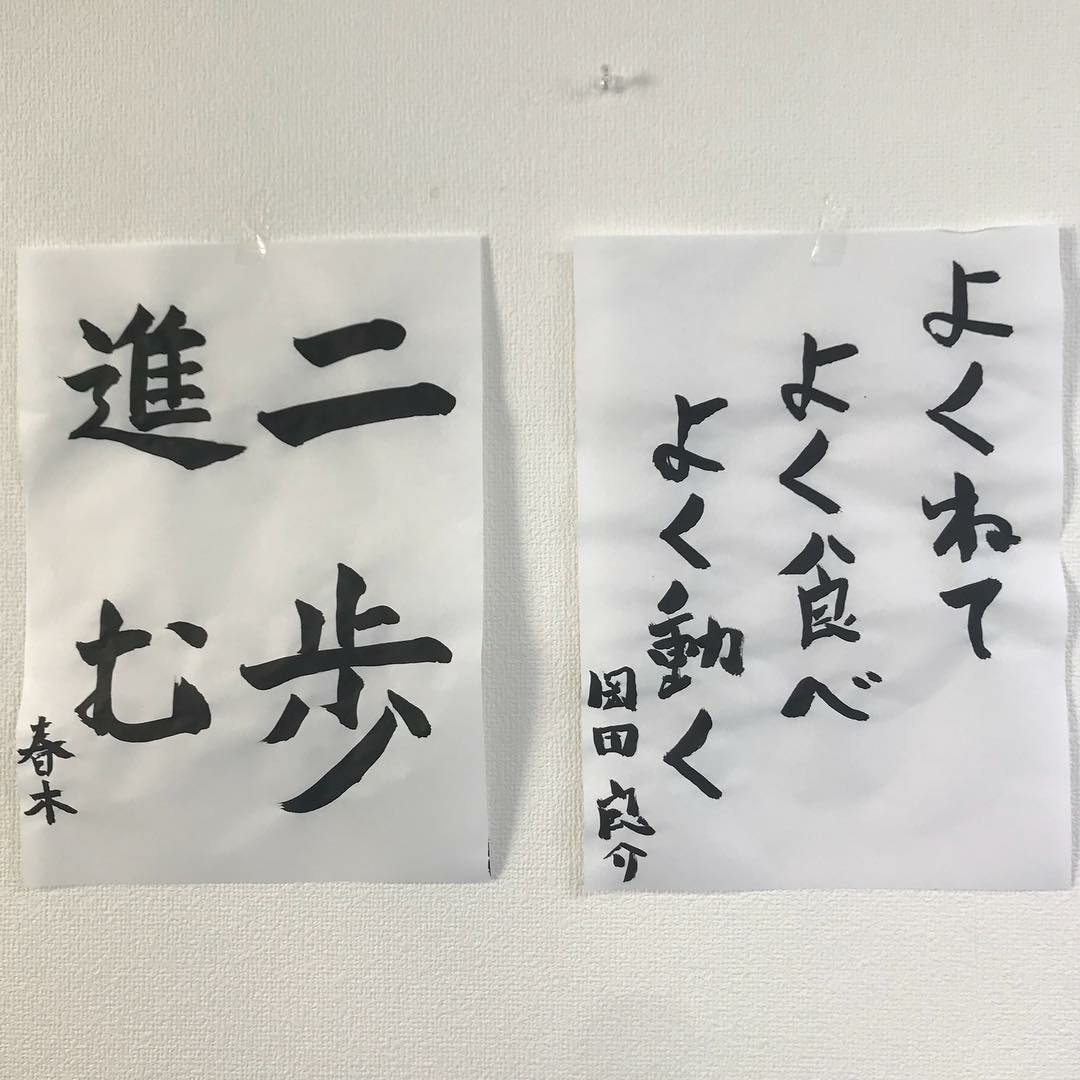 二歩
進む
春木
よくねて
よく食べ
よく動く
岡田良介